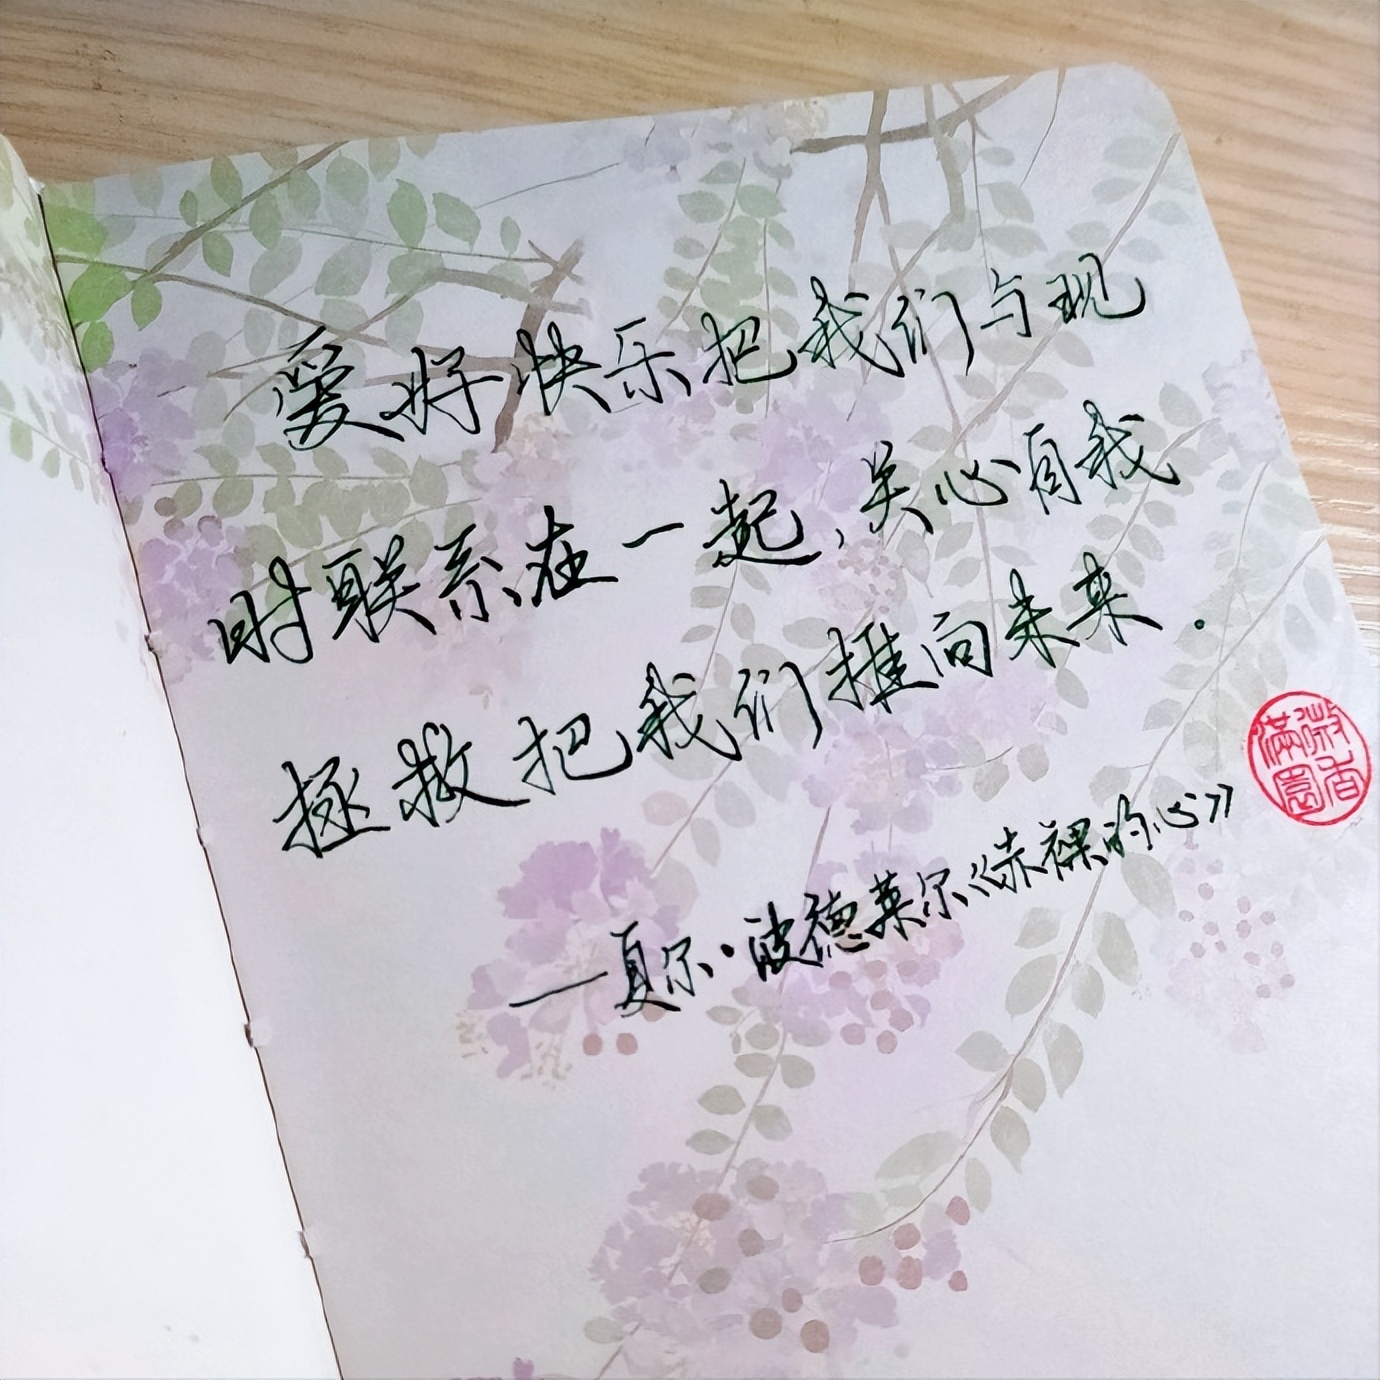 爱好快乐把我们与现
时联系在一起,关心自我
拯救把我们推向未来.
——夏尔·波德莱尔《赤裸的心》
微香
满园